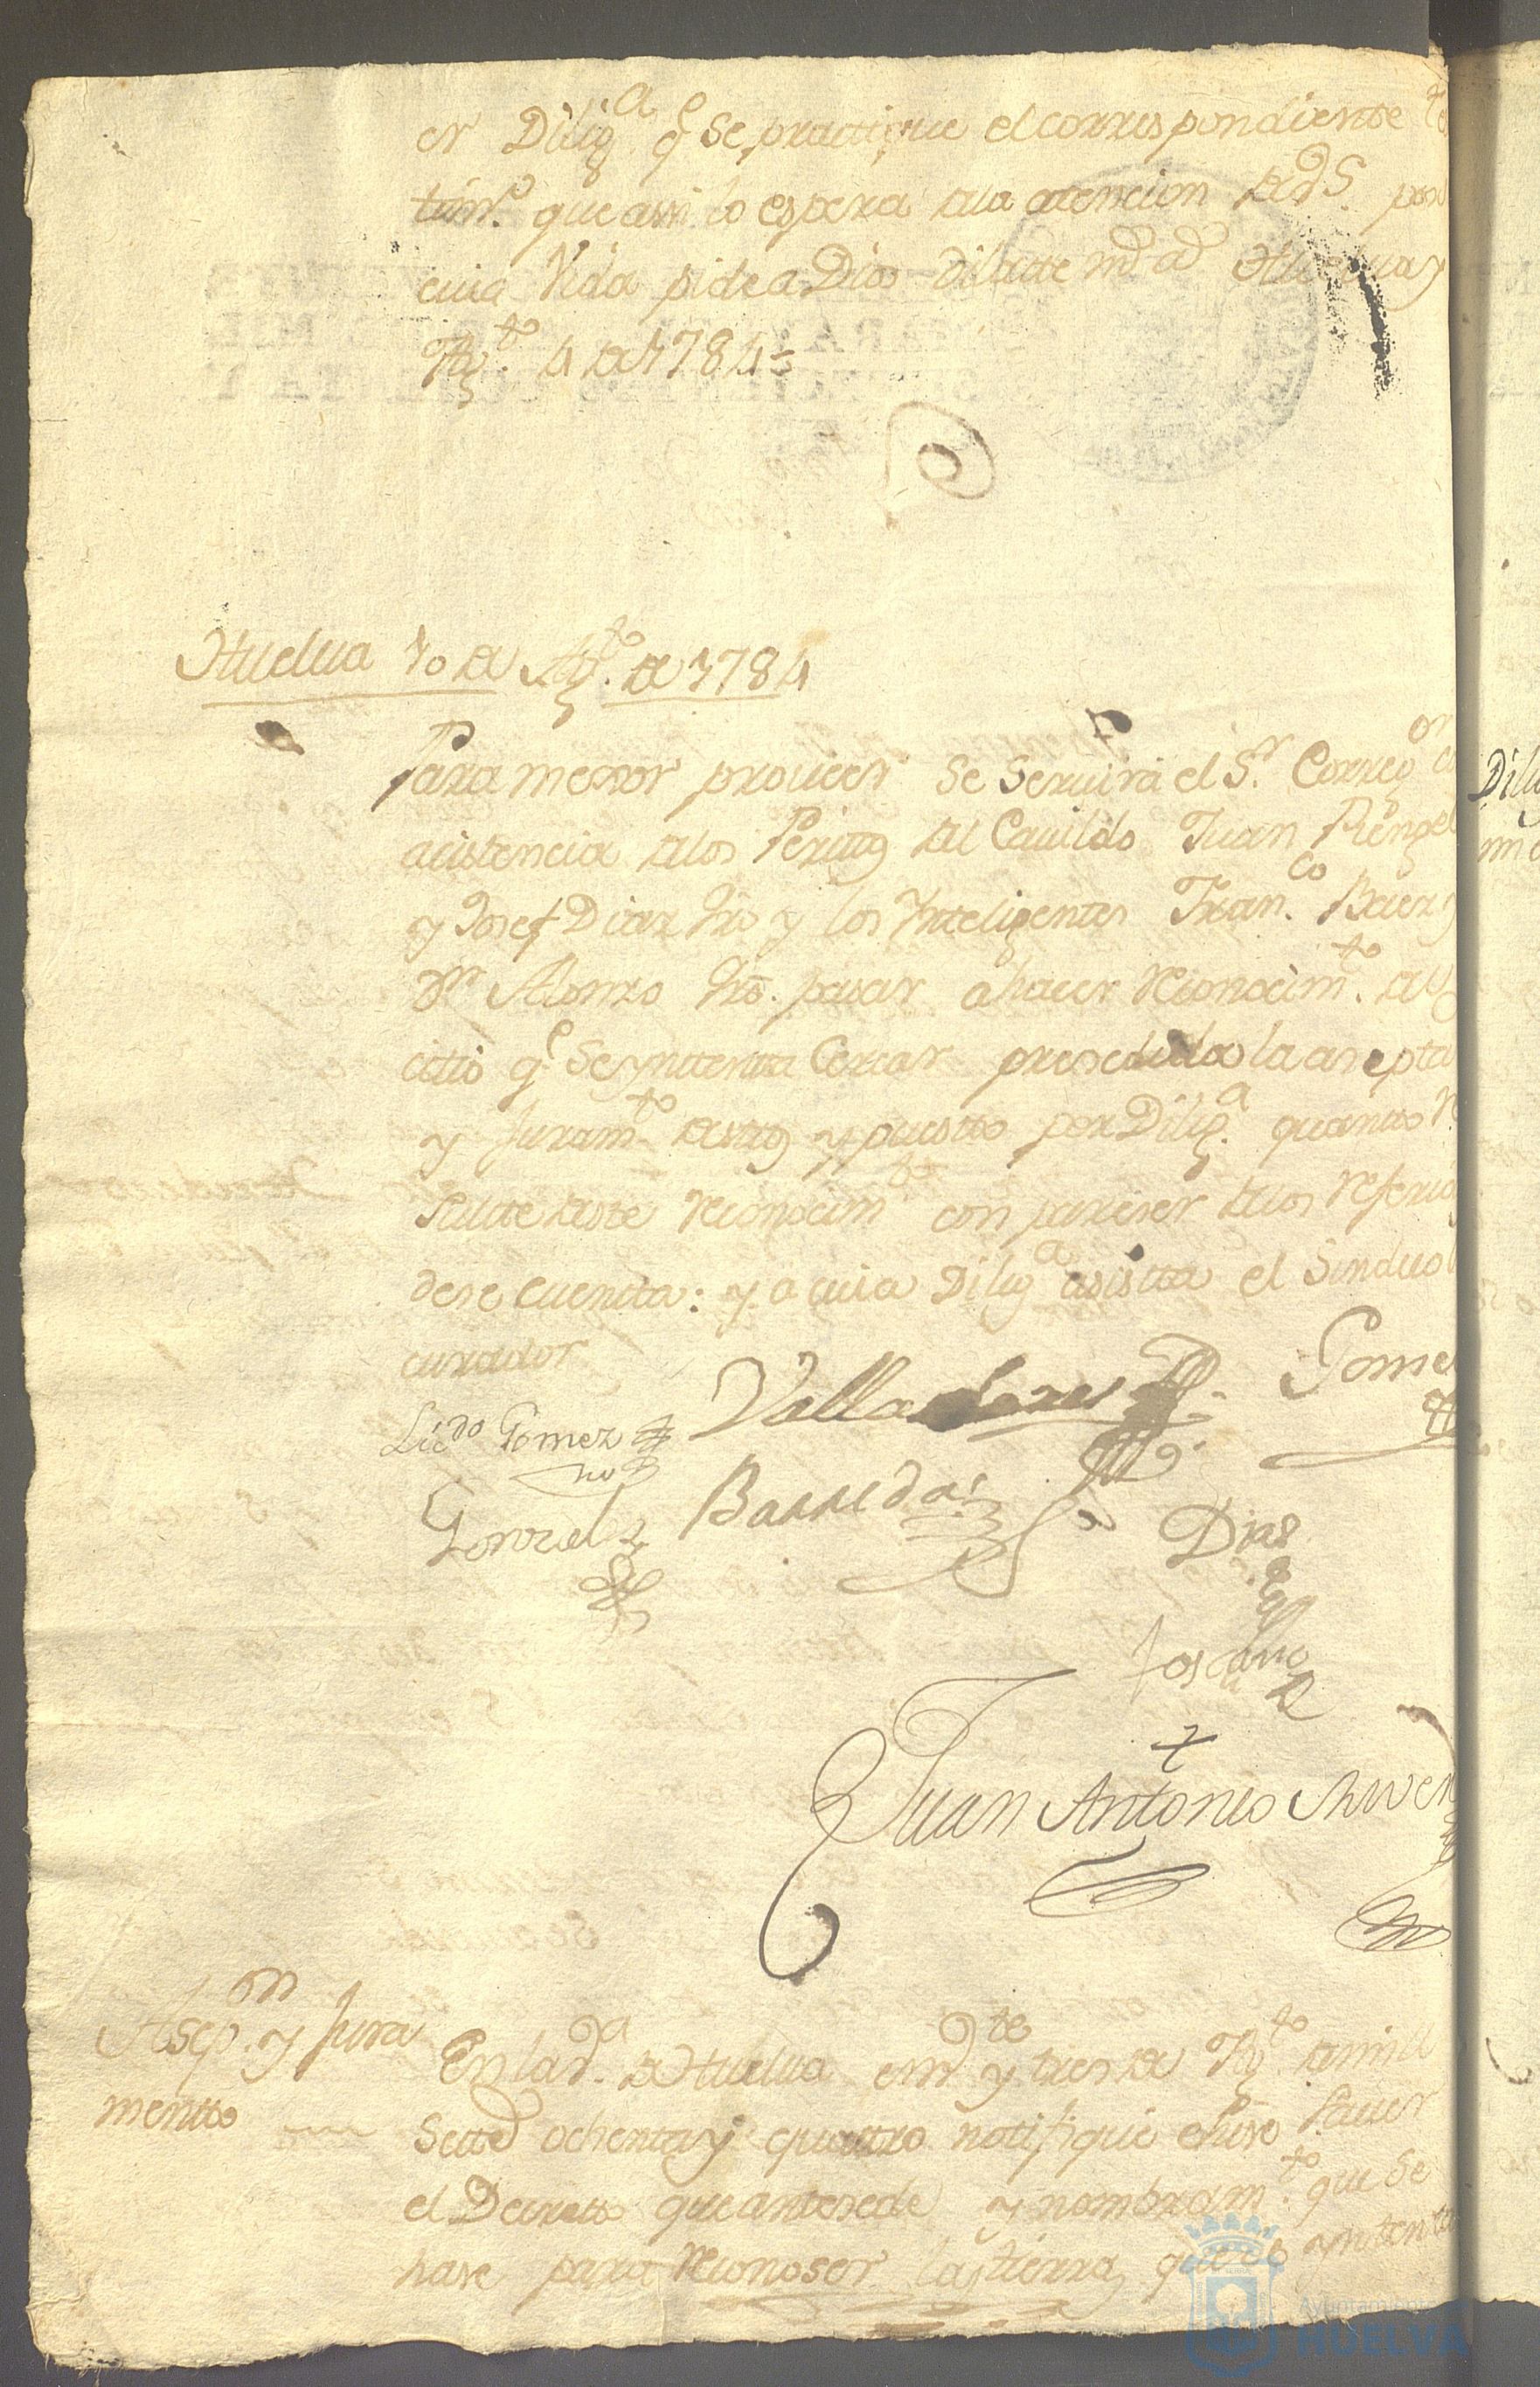 en Dilig.a q.e se practique el correspondiente
tim.o que assi lo espera de la atencion de VS. por
cuia Vida pide a Dios dilatte m.s a.s Huelva y
Ag.to 4 de 1784=
Huelua 10 de Ag.to de 1784
Para mexor proueer se seruirá el S.r Correg.or
acistencia de los Perittos del Cauildo Juan Renxel
y Josef Diaz Hro y los Ynteligentes Fran.co
D.n Alonzo Hro. pasar a hacer reconocim.to
citio q.e se yntenta Cercar presedida la asepta
y Juram.to destos y puesto por Dilig.a quanto
sulte deste reconocim.to con pareser de los referi
dese cuenta: y a cuia Dilig.a asistta el Sindico
curador
Lic.do Gomez Valladares Gome
Gonzalz Barreda Dias
Toscano
Juan Antonio
Asep.on y Jura
mentto
En la d.a de Huelua en d.o y tres de Ag.to de mil
Sette.s ochenta y quattro notifiqué e hise sauer
el Decretto que antesede y nombram.to que se
hase para reconoser las tierras que se yntenta
Ayuntamiento
HUELVA